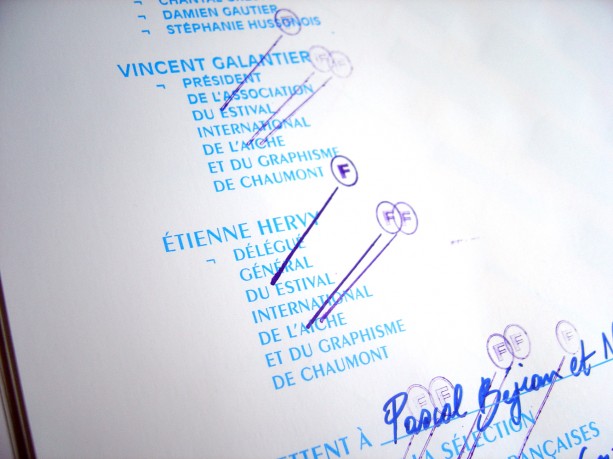 CHANTAL
¬ DAMIEN GAUTIER
¬ STÉPHANIE HUSSONOIS
F
VINCENT GALANTIER
F F
¬ PRÉSIDENT
DE L'ASSOCIATION
DU ESTIVAL
INTERNATIONAL
DE L'AICHE
ET DU GRAPHISME
DE CHAUMONT
F
ÉTIENNE HERVY
F F
¬ DÉLÉGUÉ
GÉNÉRAL
DU ESTIVAL
INTERNATIONAL
DE L'AICHE
ET DU GRAPHISME
DE CHAUMONT
F F F
F F
Pascal Bejean et N
ETTENT À
LA SÉLECTION
RANÇAISES